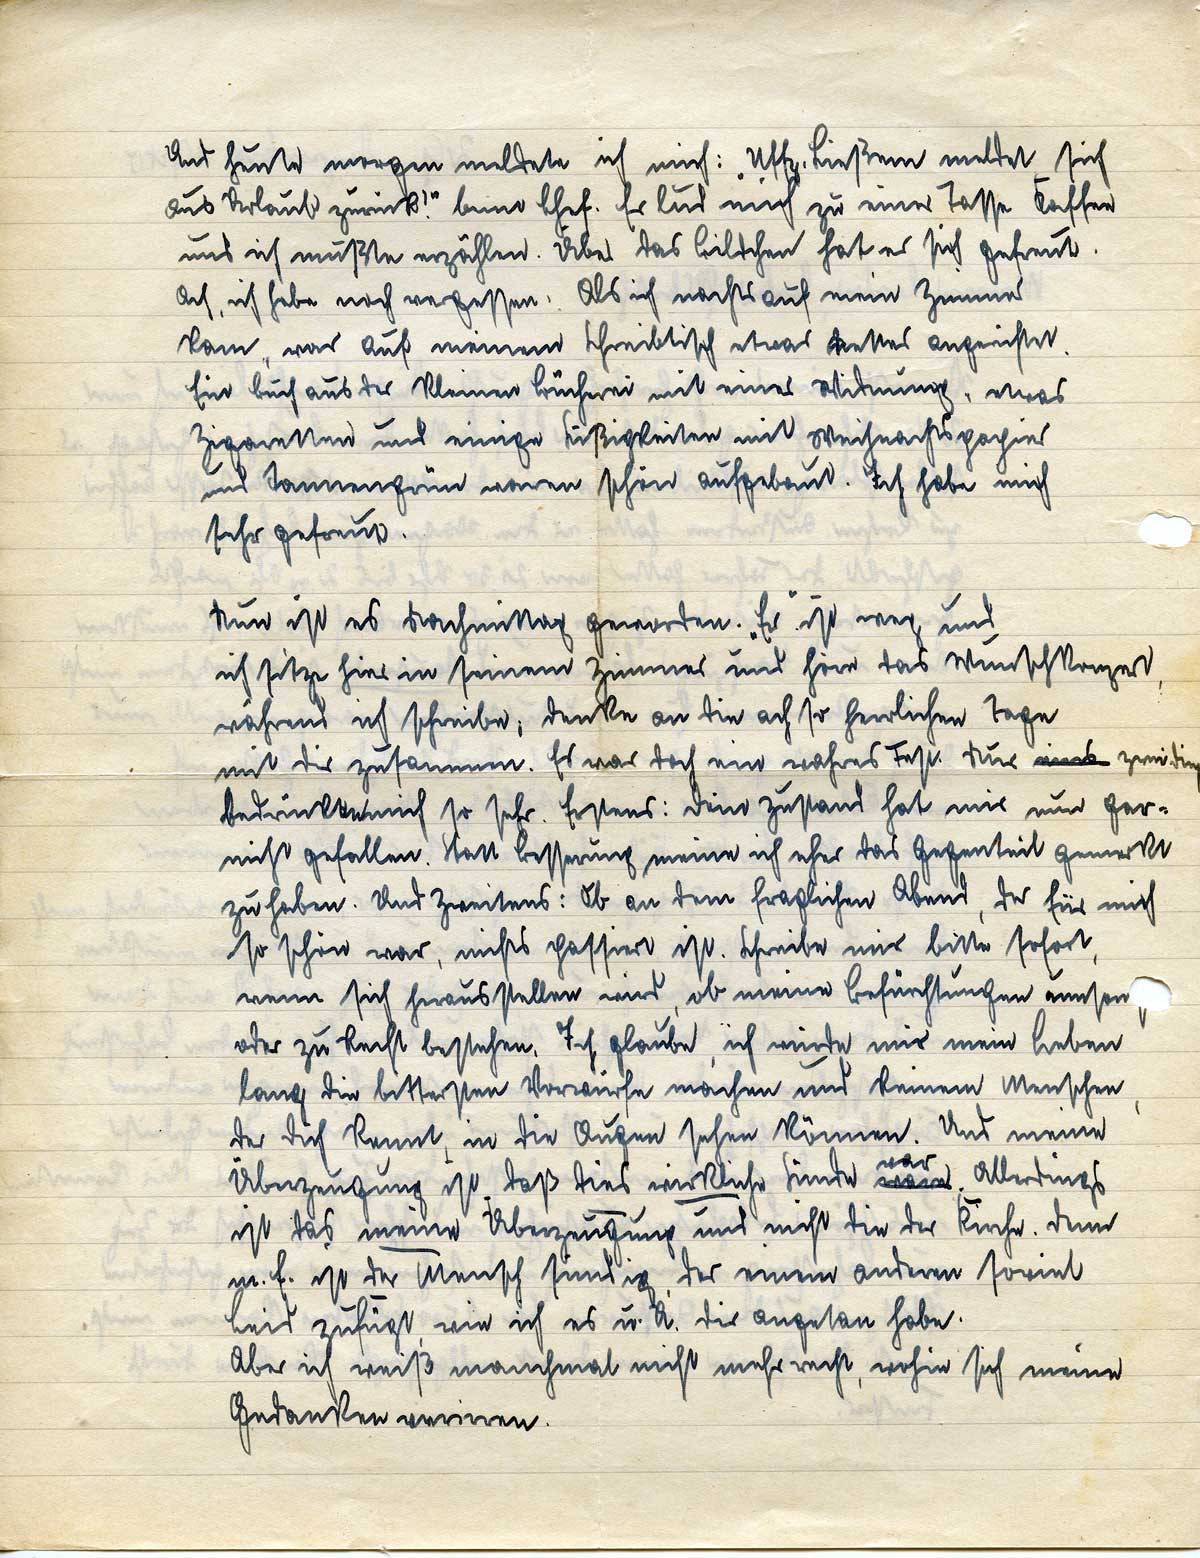 Und heute morgen meldete ich mich: „Uffz. Ließem meldet sich
aus Urlaub zurück!" beim Chef. Er lud mich zu einer Tasse Kaffee
und ich mußte erzählen. Über das Bildchen hat er sich gefreut.
Ach, ich habe noch vergessen: Als ich nachts auf mein Zimmer
kam, war auf meinem Schreibtisch etwas nettes angerichtet.
Ein Buch aus der kleinen Bücherei mit einer Widmung, etwas
Zigaretten und einige Süßigkeiten mit Weihnachtspapier
und Tannengrün waren schön aufgebaut. Ich habe mich
sehr gefreut.
Nun ist es Nachmittag geworden. „Er" ist weg, und
ich sitze hier in seinem Zimmer und höre das Wunschkonzert,
während ich schreibe, denke an die ach so herrlichen Tage
mit dir zusammen. Es war doch ein wahres Fest. Nur eines zwei Ding
bedrückten mich so sehr. Erstens: Dein Zustand hat mir nun gar-
nicht gefallen. Statt Besserung meine ich eher das Gegenteil gemerkt
zu haben. Und Zweitens: Ob an dem fraglichen Abend, der für mich
so schön war, nichts passiert ist. Schreibe mir bitte sofort,
wenn sich herausstellen wird, ob meine Befürchtungen umson
oder zu Recht bestehen. Ich glaube, ich würde mir mein Leben
lang die bittersten Vorwürfe machen und keinem Menschen,
der dich kennt, in die Augen sehen können. Und meine
Überzeugung ist, daß dies wirkliche Sünde war wäre. Allerdings
ist das meine Überzeugung und nicht die der Kirche. Denn
m. E. ist der Mensch sündig, der einem anderen soviel
Leid zufügt, wie ich es u. U. dir angetan habe.
Aber ich weiß manchmal nicht mehr recht, wohin sich meine
Gedanken verirren.